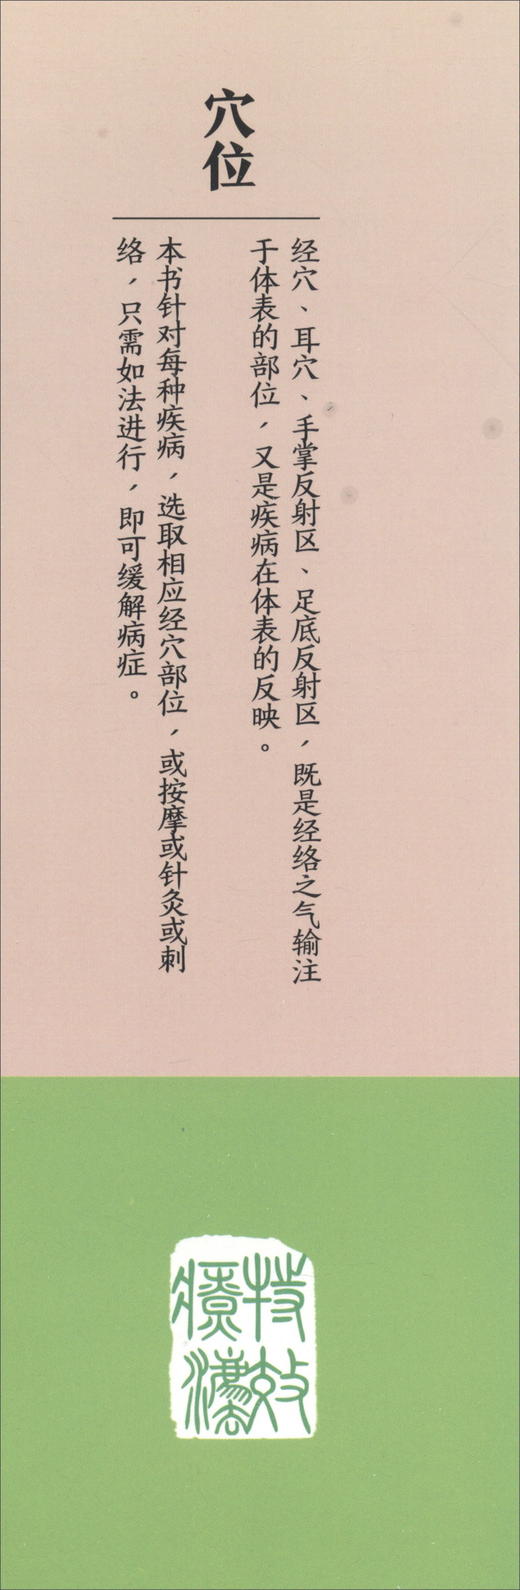 穴位
经穴、耳穴、手掌反射区、足底反射区，既是经络之气输注
于体表的部位，又是疾病在体表的反映。
本书针对每种疾病，选取相应经穴部位，或按摩或针灸或刺
络，只需如法进行，即可缓解病症。
特效
疗法